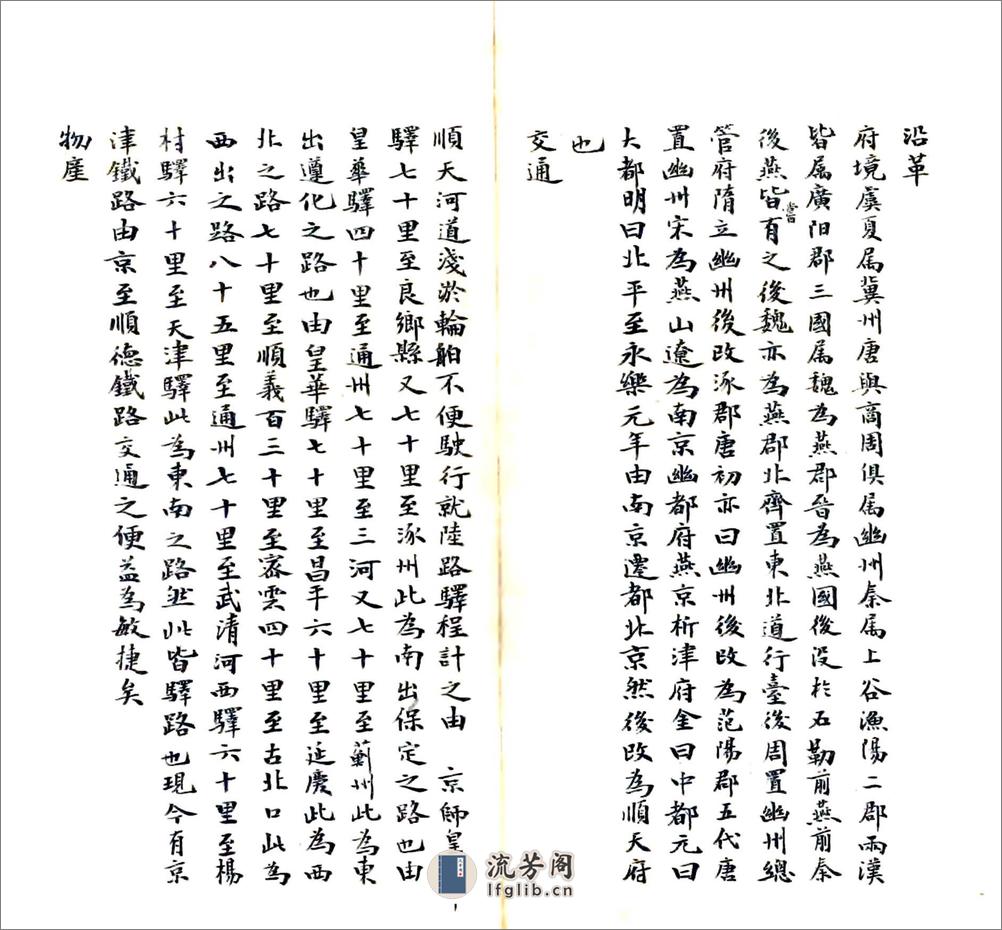 沿革
府境虞夏属冀州唐與商周俱属幽州秦属上谷漁陽二郡兩漢
皆属廣阳郡三國属魏為燕郡晉為燕國後没於石勒前燕前秦
後燕皆嘗有之後魏亦為燕郡北齊置東北道行臺後周置幽州總
管府隋立幽州後改涿郡唐初亦曰幽州後改為范陽郡五代唐
置幽州宋為燕山遼為南京幽都府燕京析津府金曰中都元曰
大都明曰北平至永樂元年由南京遷都北京然後改為順天府
也
交通
順天河道淺淤輪船不便駛行就陸路驛程計之由 京師皇華
驛七十里至良鄉縣又七十里至涿州此為南出保定之路也由
皇華驛四十里至通州七十里至三河又七十里至薊州此為東
出遵化之路也由皇華驛七十里至昌平六十里至延慶此為西
北之路七十里至順義百三十里至密雲四十里至古北口此為
西出之路八十五里至通州七十里至武清河西驛六十里至楊
村驛六十里至天津驛此為東南之路然此皆驛路也現今有京
津鐵路由京至順德鐵路交通之便益為敏捷矣
物產
流芳阁
lfglib.cn